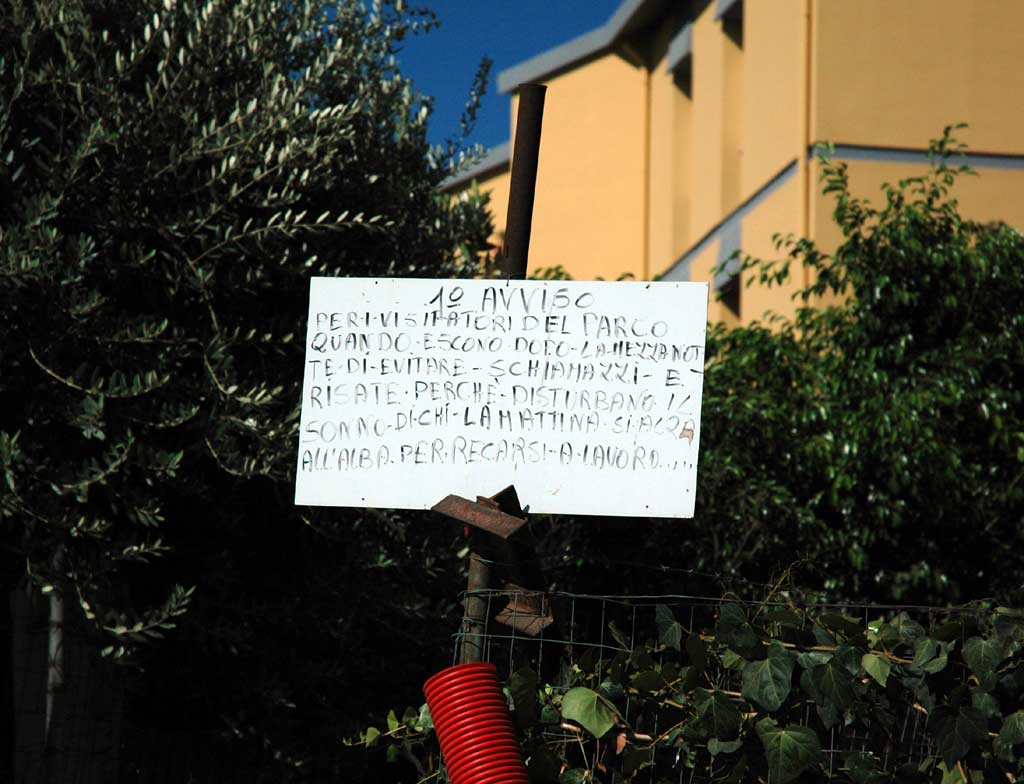 1º AVVISO
PER·I·VISITATORI DEL PARCO
QUANDO·ESCONO·DOPO-LA-MEZZANOT-
TE-DI-EVITARE-SCHIAMAZZI-E-
RISATE·PERCHÈ·DISTURBANO·IL
SONNO-DI-CHI-LA MATTINA·SI·ALZA
ALL'ALBA·PER·RECARSI-A-LAVORO.....